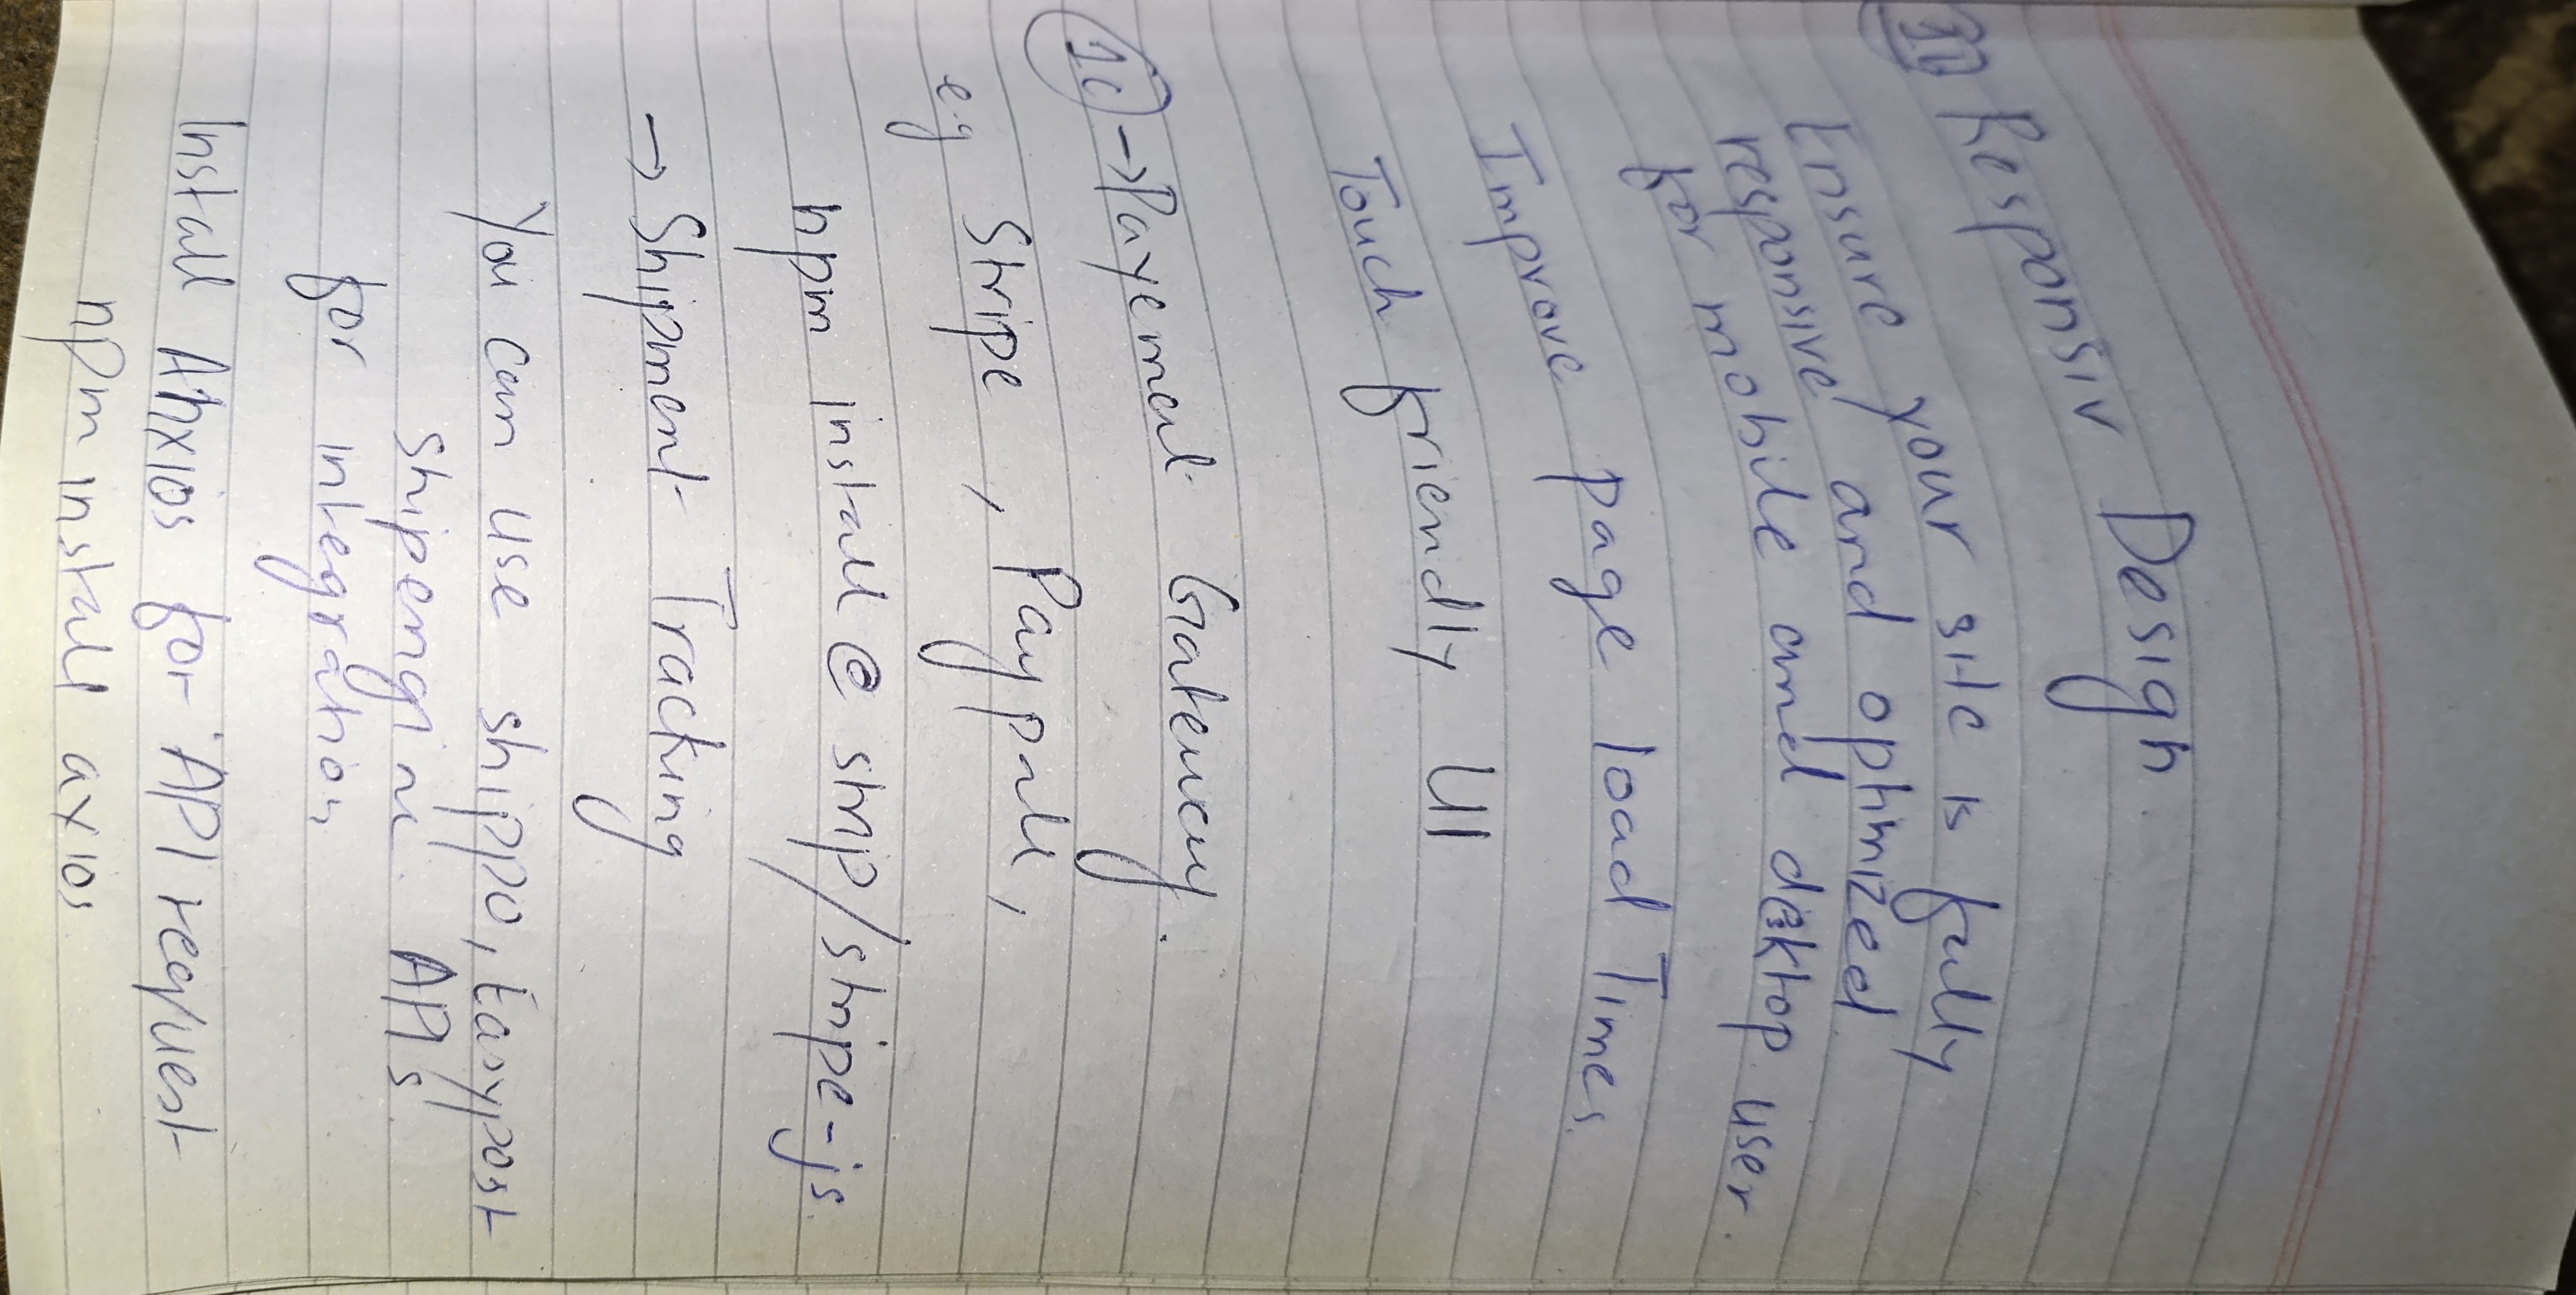 Responsiv Design.
Ensure your site is fully
responsive and optimized
for mobile and desktop user.
Improve page load Times.
Touch friendly UI
1c → Payement Gateway.
e.g Stripe, Paypall,
npm install @ strip/stripe-js.
→ Shipment Tracking
You can use shippo, Easypost
shipengine. APIs.
for integration,
Install Ahxios for API request
npm install axios